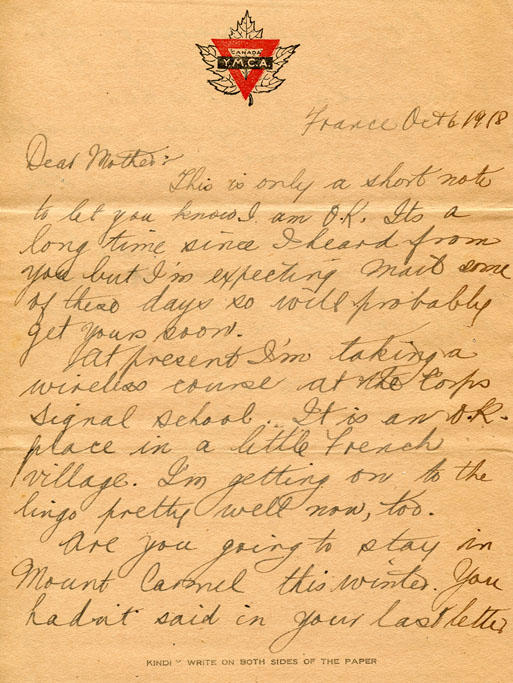 CANADA
Y.M.C.A.
France Oct 6 1918
Dear Mother:
This is only a short note
to let you know I am O.K. Its a
long time since I heard from
you but I'm expecting mail some
of these days so will probably
get yours soon.
At present I'm taking a
wireless course at the Corps
Signal school. It is an O.K.
place in a little French
village. I'm getting on to the
lingo pretty well now, too.
Are you going to stay in
Mount Carmel this winter. You
hadn't said in your last letter
KINDLY WRITE ON BOTH SIDES OF THE PAPER